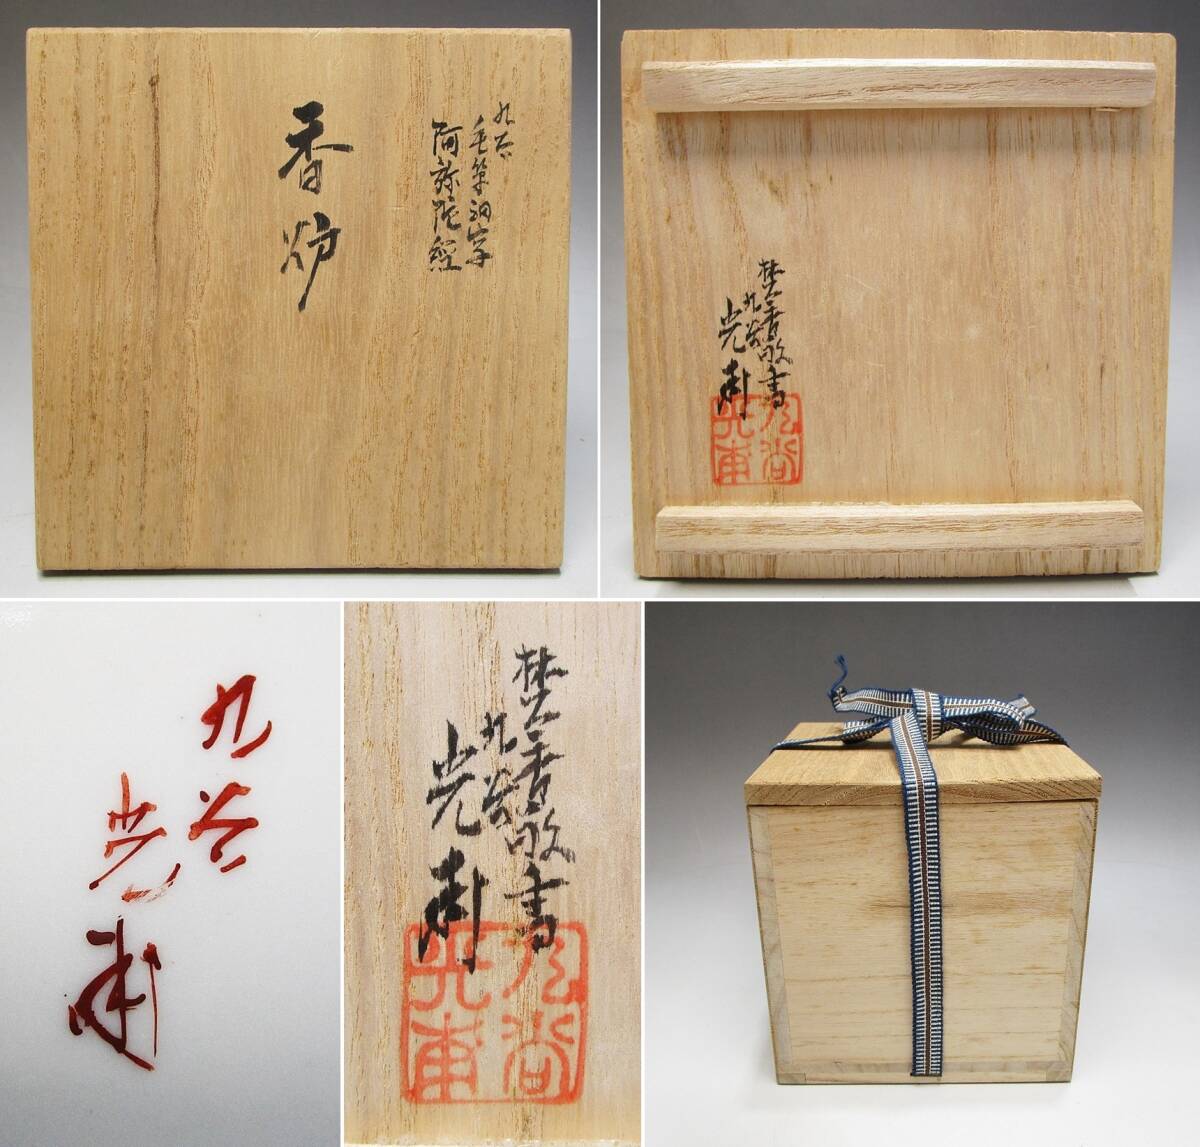 九谷
毛筆細字
阿弥陀経
香炉
焚香敬書
九谷
光
九谷
光
九谷
光
焚香敬書
九谷
光
九谷
光